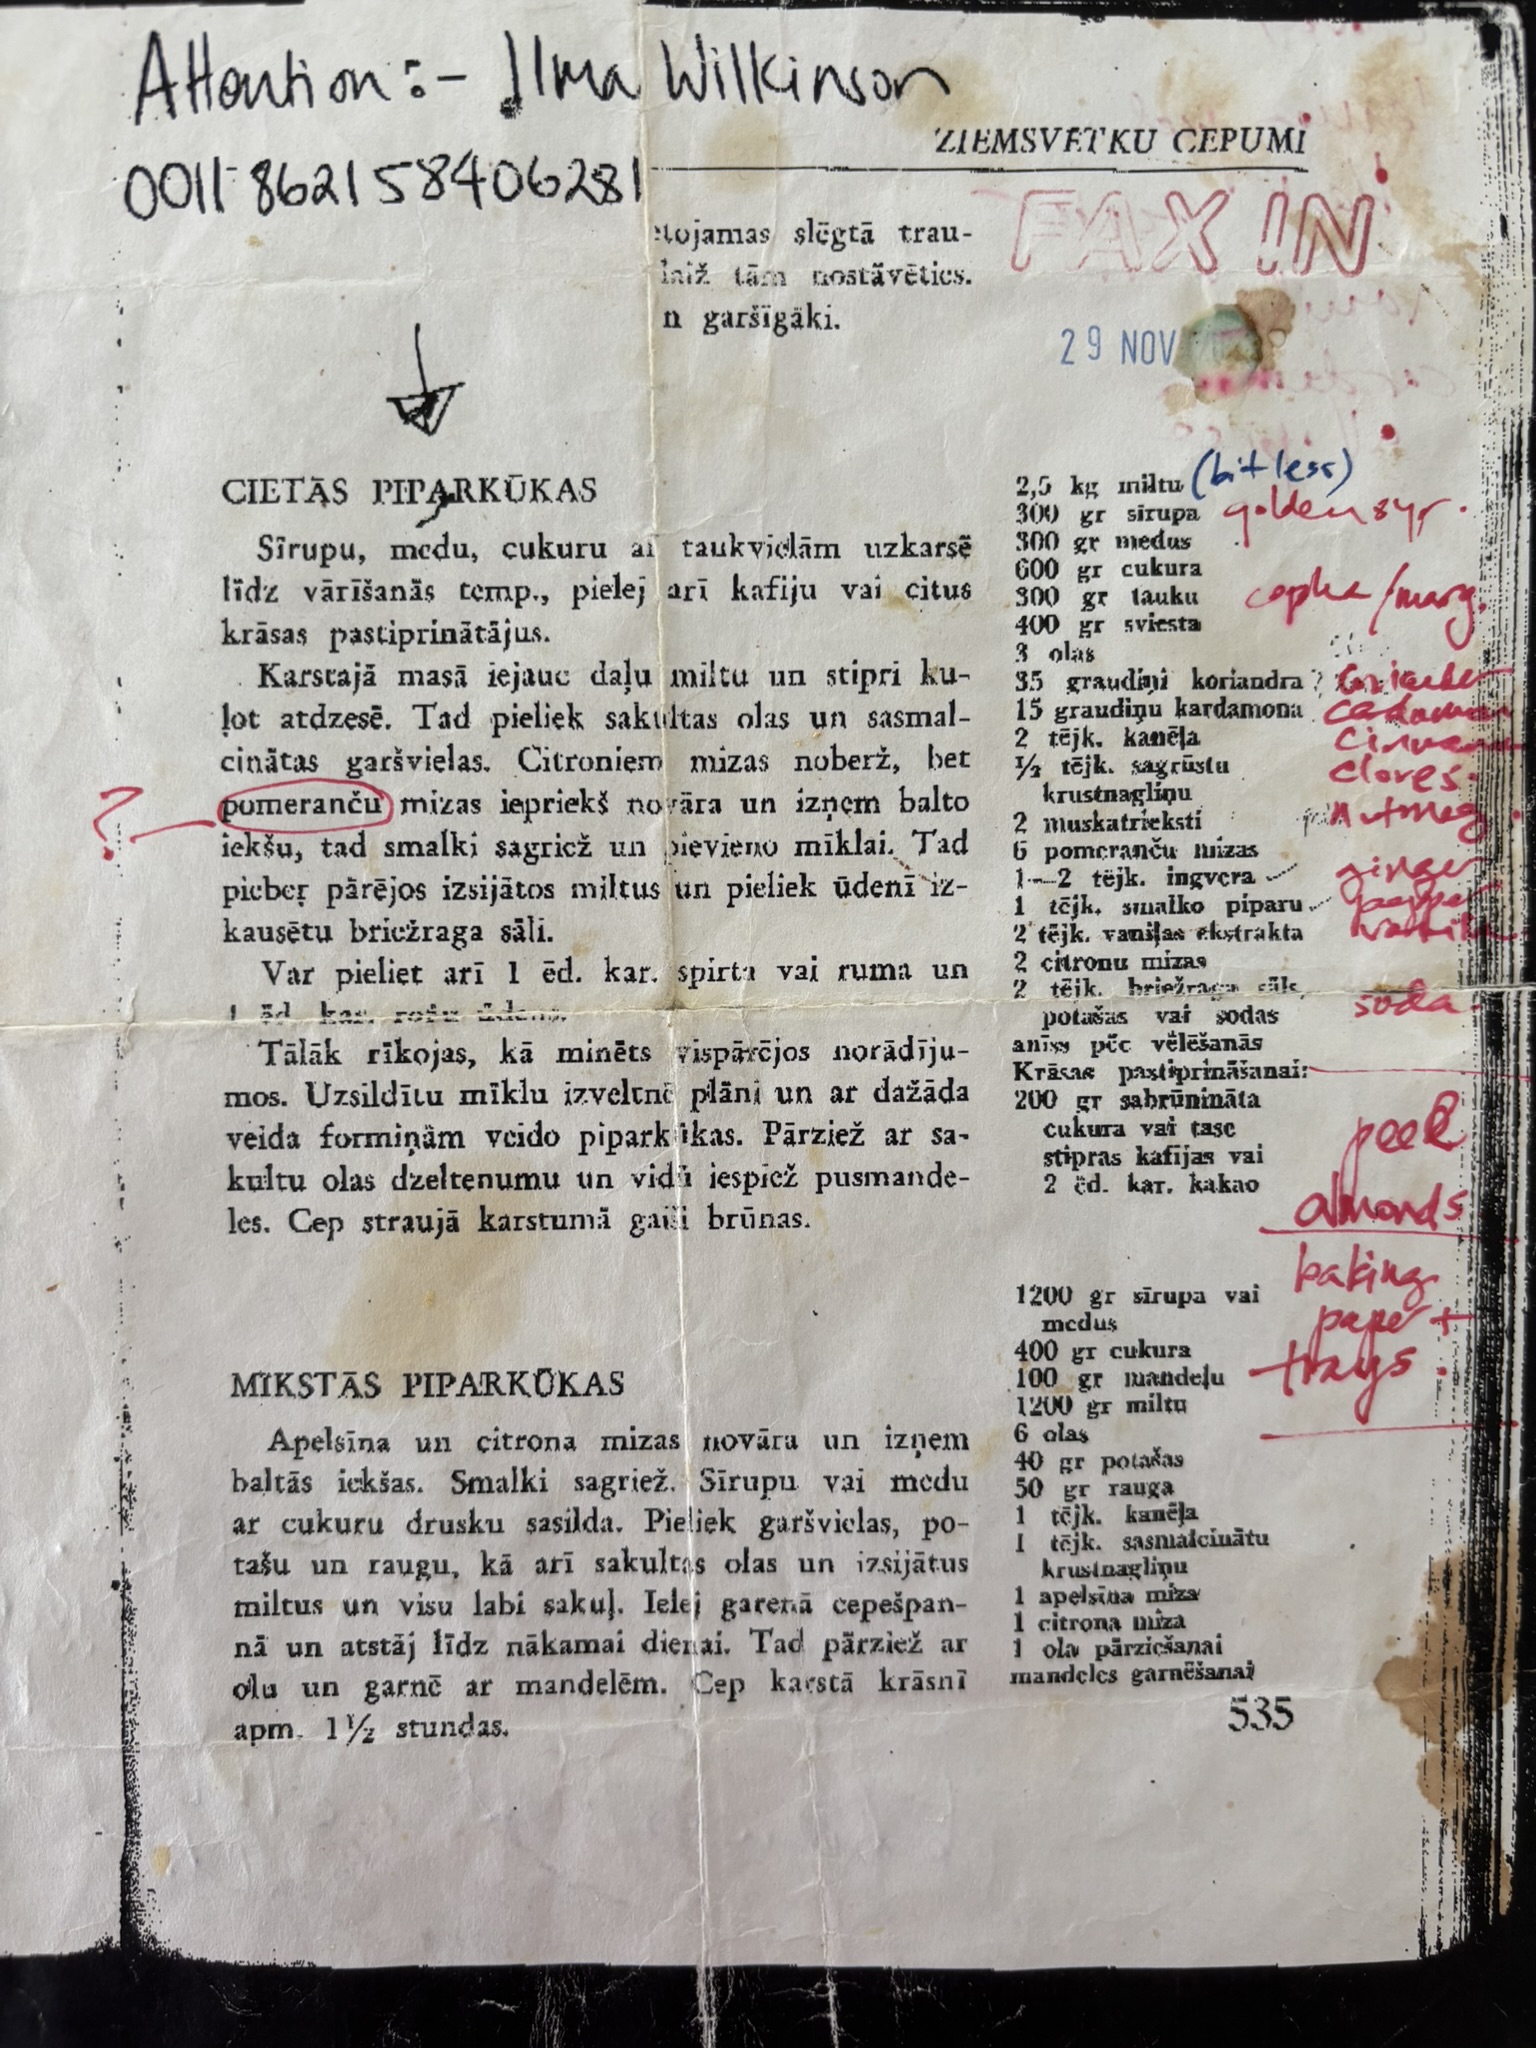 Attention:- Ilma Wilkinson
0011 8621 58406281
ZIEMSVĒTKU CEPUMI
FAX IN
29 NOV
tojamas slēgtā trau-
laiž tām nostāvēties.
n garšīgāki.
CIETĀS PIPARKŪKAS
Sīrupu, medu, cukuru ar taukvielām uzkarsē
līdz vārīšanās temp., pielej arī kafiju vai citus
krāsas pastiprinātājus.
Karstajā masā iejauc daļu miltu un stipri ku-
ļot atdzesē. Tad pieliek sakultas olas un sasmal-
cinātas garšvielas. Citroniem mizas noberž, bet
? pomeranču mizas iepriekš novāra un izņem balto
iekšu, tad smalki sagriež un pievieno mīklai. Tad
pieber pārējos izsijātos miltus un pieliek ūdenī iz-
kausētu briežraga sāli.
Var pieliet arī 1 ēd. kar. spirta vai ruma un
1 ēd. kar. rožu ūdens.
Tālāk rīkojas, kā minēts vispārējos norādīju-
mos. Uzsildītu mīklu izveltnē plāni un ar dažāda
veida formiņām veido piparkūkas. Pārziež ar sa-
kultu olas dzeltenumu un vidū iespiež pusmande-
les. Cep straujā karstumā gaiši brūnas.
2,5 kg miltu (bit less)
300 gr sīrupa golden syr.
300 gr medus
600 gr cukura
300 gr tauku copha/marg.
400 gr sviesta
3 olas
35 graudiņi koriandra ? Coriander
15 graudiņu kardamona cadamon
2 tējk. kanēļa
½ tējk. sagrūstu cloves.
krustnagliņu
2 muskatrieksti nutmeg.
6 pomeranču mizas
1—2 tējk. ingvera ginger
1 tējk. smalko piparu pepper
2 tējk. vaniļas ekstrakta vanilla
2 citronu mizas
2 tējk. briežraga sāls, soda
potašas vai sodas
aniss pēc vēlēšanās
Krāsas pastiprināšanai:
200 gr sabrūnināta
cukura vai tase
stipras kafijas vai
2 ēd. kar. kakao
peel
almonds
baking
paper +
trays.
MĪKSTĀS PIPARKŪKAS
Apelsīna un citrona mizas novāra un izņem
baltās iekšas. Smalki sagriež. Sīrupu vai medu
ar cukuru drusku sasilda. Pieliek garšvielas, po-
tašu un raugu, kā arī sakultas olas un izsijātus
miltus un visu labi sakuļ. Ielej garenā cepešpan-
nā un atstāj līdz nākamai dienai. Tad pārziež ar
olu un garnē ar mandelēm. Cep karstā krāsnī
apm. 1½ stundas.
1200 gr sīrupa vai
medus
400 gr cukura
100 gr mandeļu
1200 gr miltu
6 olas
40 gr potašas
50 gr rauga
1 tējk. kanēļa
1 tējk. sasmalcinātu
krustnagliņu
1 apelsīna miza
1 citrona miza
1 ola pārziešanai
mandeles garnēšanai
535